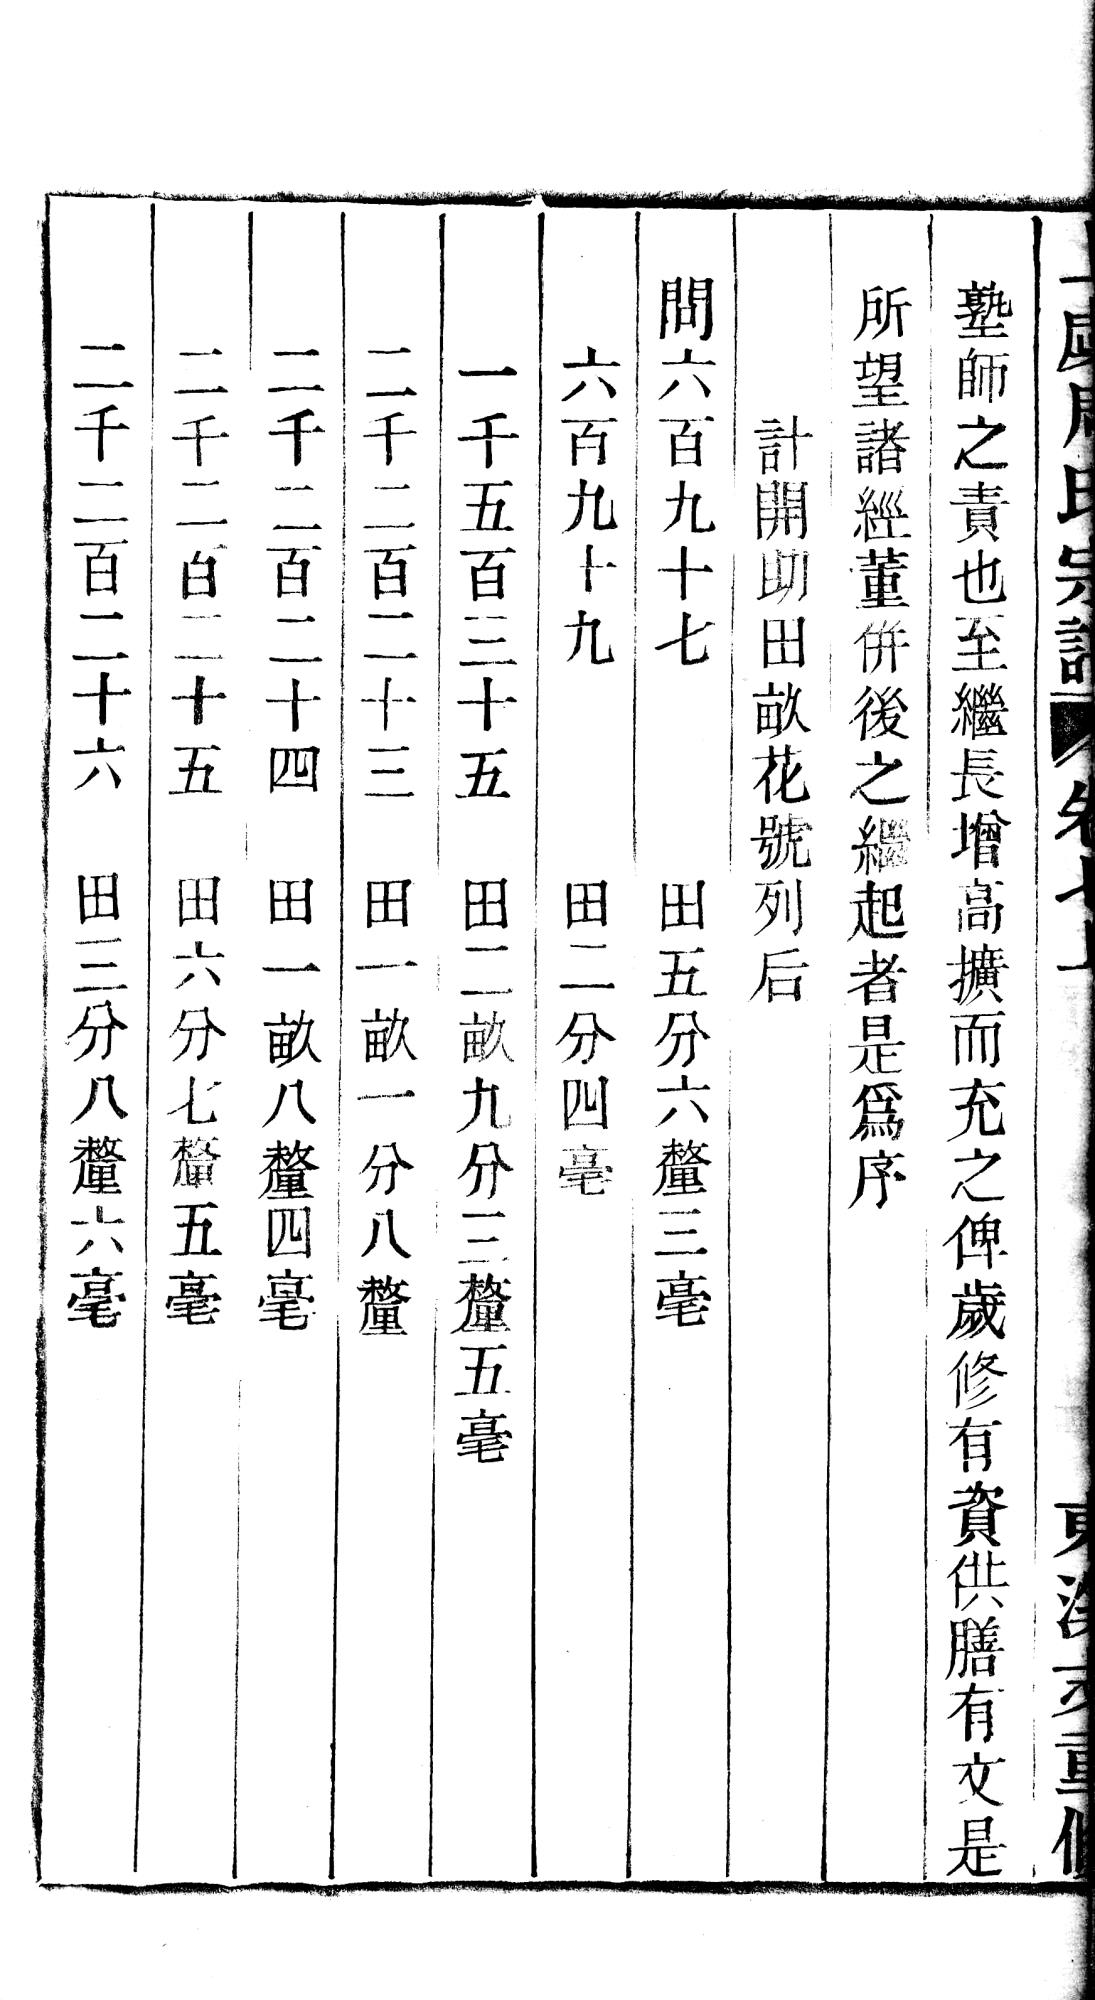 周氏宗譜 卷七上 重修
塾師之責也至繼長增高擴而充之俾歲修有資供膳有文是
所望諸經董併後之繼起者是爲序
計開助田畝花號列后
問六百九十七 田五分六釐三毫
六百九十九 田二分四毫
一千五百三十五 田二畝九分三釐五毫
二千二百二十三 田一畝一分八釐
二千二百二十四 田一畝八釐四毫
二千二百二十五 田六分七釐五毫
二千二百二十六 田三分八釐六毫